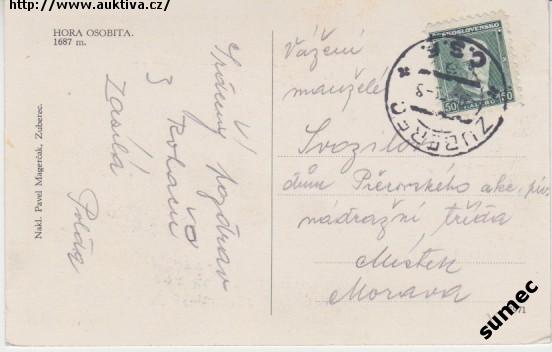 http://www.auktiva.cz/
HORA OSOBITA.
1687 m.
Nakl. Pavel Magerčák, Zuberec.
Srdečný pozdrav
z Roháčů
zasílá
Polák
ČESKOSLOVENSKO
50 50
ZUBEREC
Č.S.R.
Vážení
manželé
Svozilo
dům Přerovského akc. piv.
nádražní třída
Místek
Morava
71
sumec